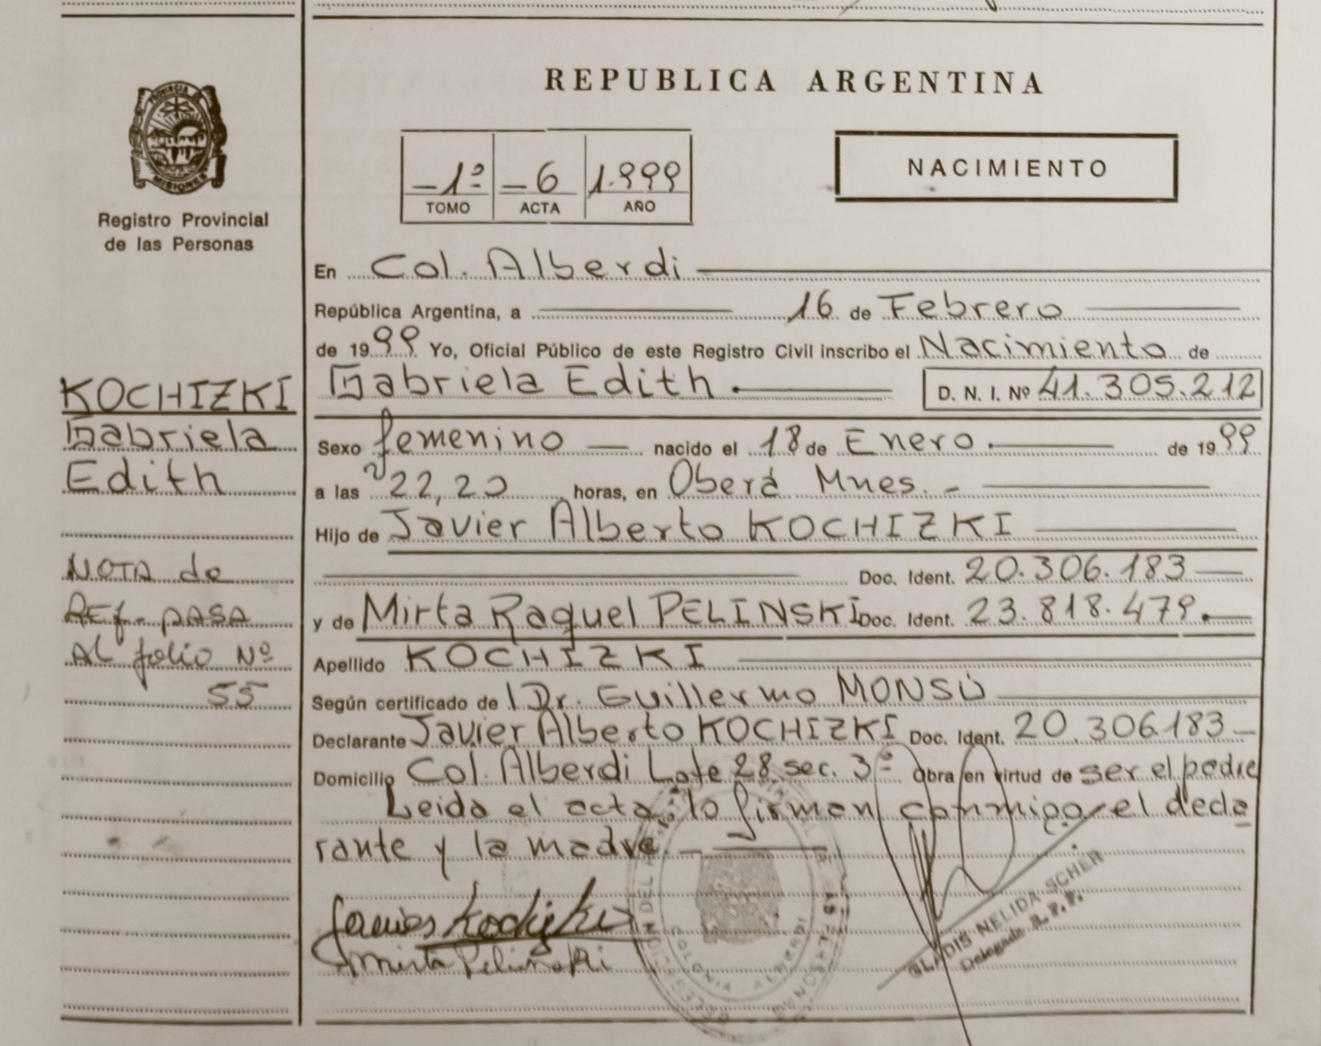 REPUBLICA ARGENTINA
PROVINCIA DE
MISIONES
Registro Provincial
de las Personas
-1º -6 1.999
TOMO ACTA AÑO
NACIMIENTO
En Col. Alberdi
República Argentina, a 16 de Febrero
de 1999 Yo, Oficial Público de este Registro Civil inscribo el Nacimiento de
Gabriela Edith D. N. I. Nº 41.305.212
KOCHIZKI
Gabriela
Edith
Sexo femenino nacido el 18 de Enero de 1999
a las 22,20 horas, en Oberá Mnes.
Hijo de Javier Alberto KOCHIZKI
Doc. Ident. 20.306.183
y de Mirta Raquel PELINSKI Doc. Ident. 23.818.479.
NOTA de
REf. pASA
AL folio Nº
55
Apellido KOCHIZKI
Según certificado de Dr. Guillermo MONSÚ
Declarante Javier Alberto KOCHIZKI Doc. Ident. 20.306183
Domicilio Col. Alberdi Lote 28 sec. 3º Obra en virtud de ser el padre
Leida el acta lo firman conmigo el decla
rante y la madre.
Kochizki
Mirta Pelinski
COLONIA ALBERDI
GLADIS NELIDA SCHER
Delegada R.P.P.